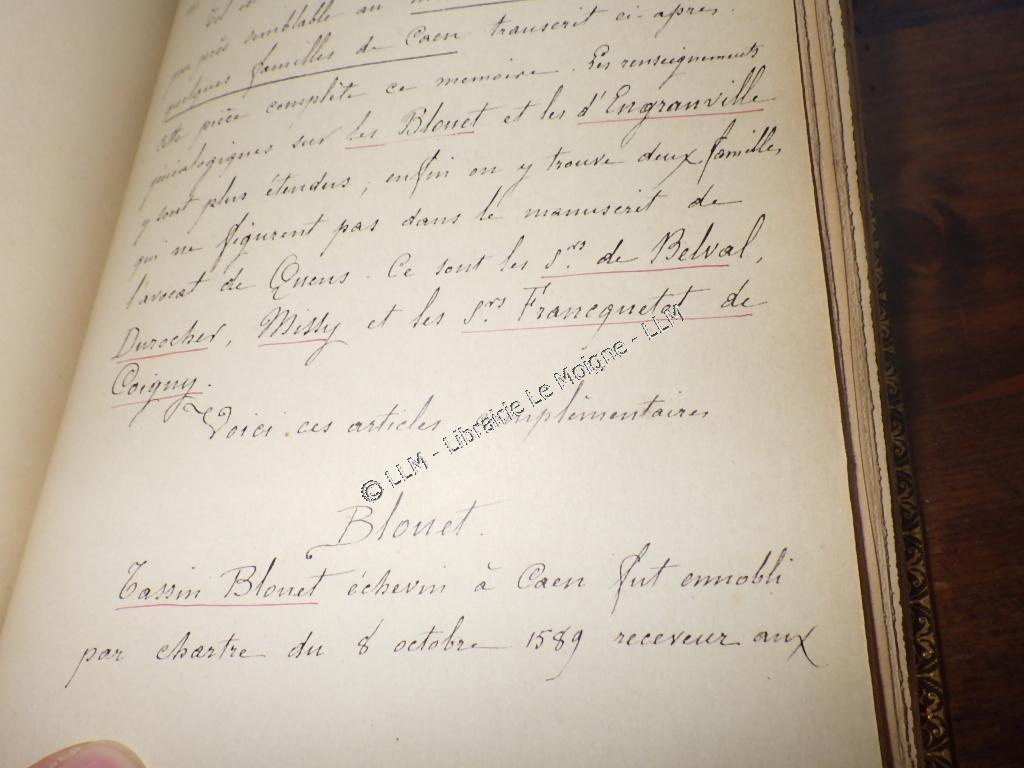 peu près semblable au
quelques familles de Caen transcrit ci-après.
Cette pièce complète ce mémoire. Les renseignements
généalogiques sur les Blouet et les d'Engranville
y sont plus étendus ; enfin on y trouve deux familles
qui ne figurent pas dans le manuscrit de
l'avocat de Quens. Ce sont les srs. de Belval,
Durocher, Missy et les srs. Francquetot de
Coigny.
Voici ces articles complémentaires
Blouet.
Tassin Blouet échevin à Caen fut ennobli
par chartre du 8 octobre 1589 receveur aux
© LLM - Librairie Le Moigne - LLM